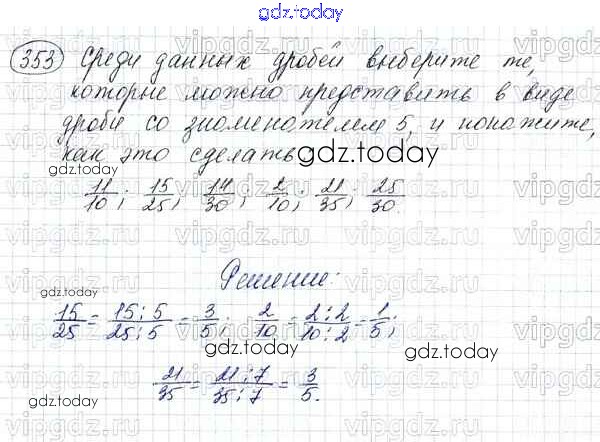 gdz.today
353 Среди данных дробей выберите те,
которые можно представить в виде
дроби со знаменателем 5, и покажите,
как это сделать
gdz.today
11/10; 15/25; 14/30; 2/10; 21/35; 25/30.
Решение:
15/25 = 15:5/25:5 = 3/5; 2/10 = 2:2/10:2 = 1/5;
gdz.today
gdz.today
gdz.today
21/35 = 21:7/35:7 = 3/5.
gdz.today
gdz.today
vipgdz.ru